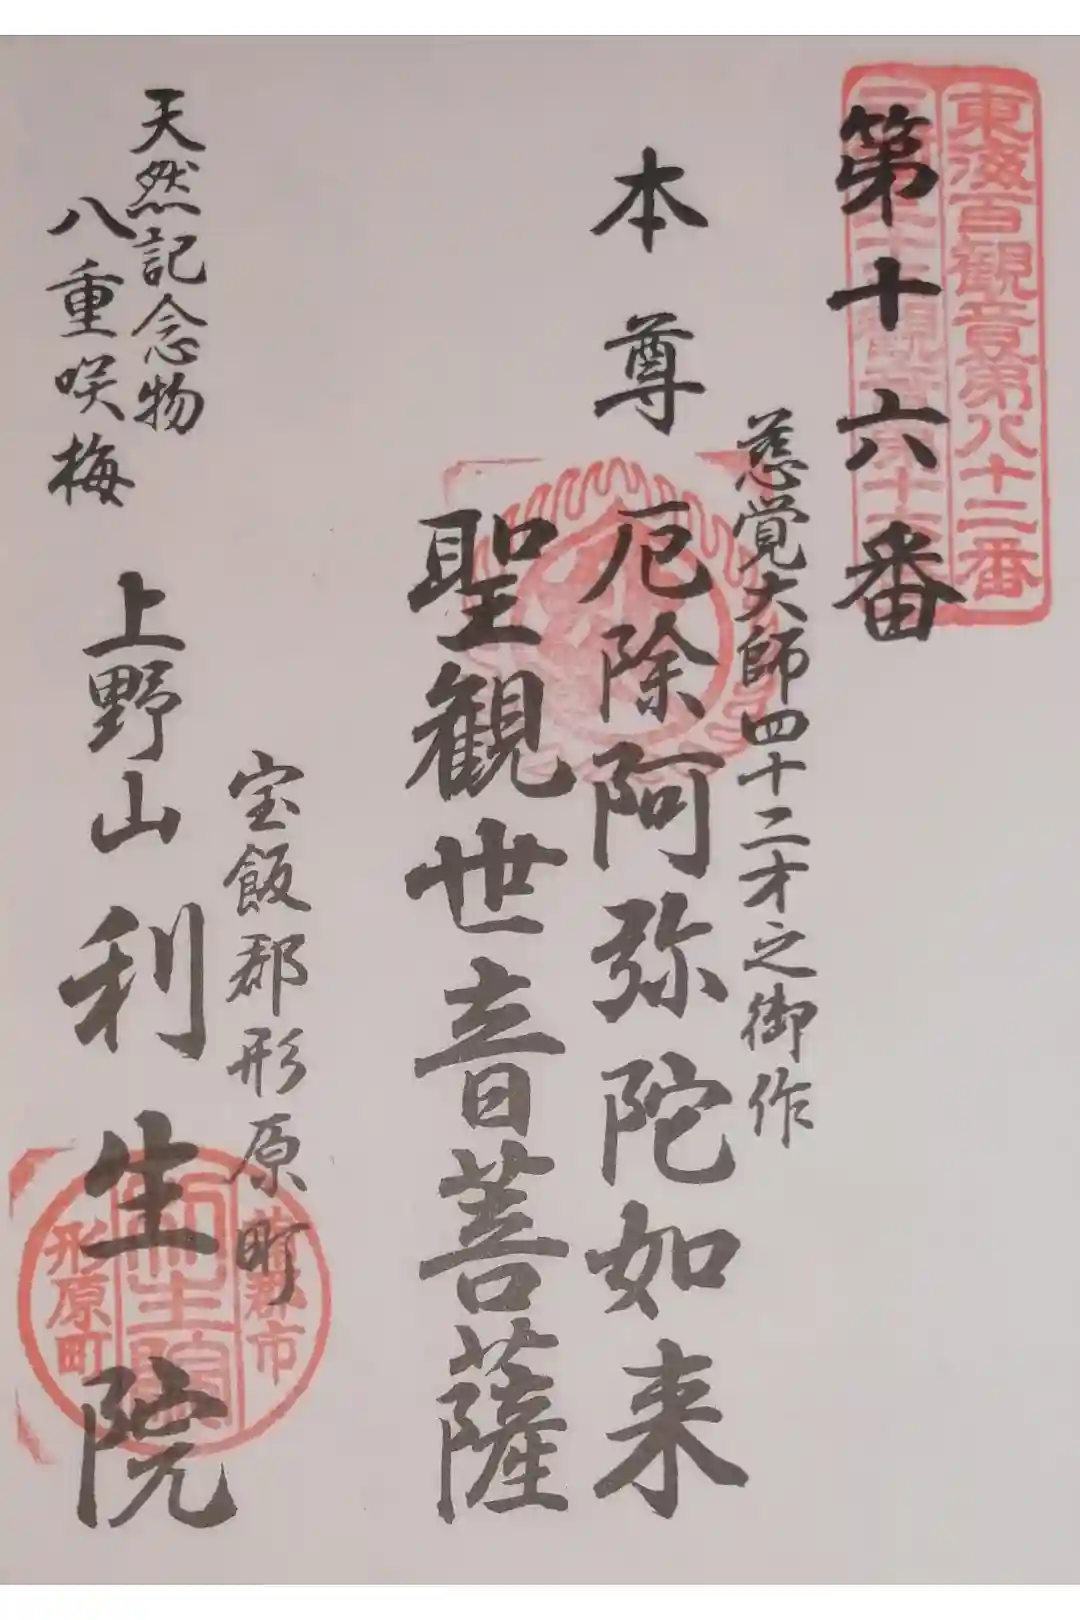 東海百観音第八十二番
第十六番
慈覚大師四十二才之御作
本尊 厄除阿弥陀如来
聖観世音菩薩
宝飯郡形原町
上野山 利生院
天然記念物
八重咲梅
蒲郡市
利生院
形原町